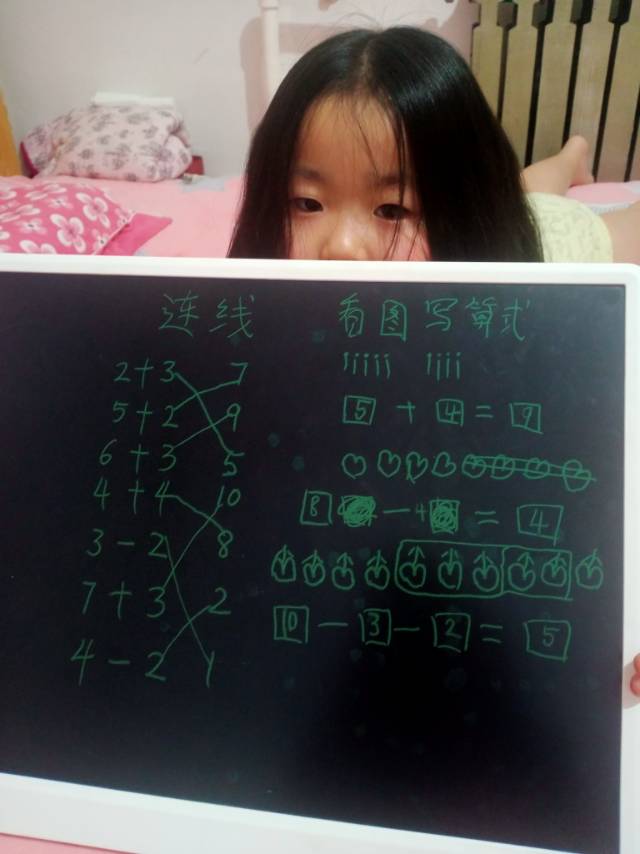 连线
2+3 7
5+2 9
6+3 5
4+4 10
3-2 8
7+3 2
4-2 1
看图写算式
5 + 4 = 9
8 - 4 = 4
10 - 3 - 2 = 5